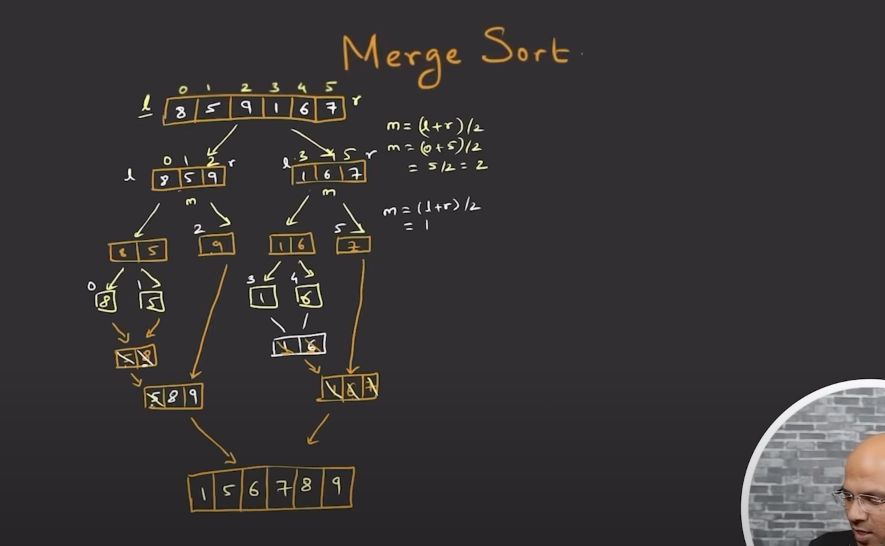 Merge Sort
0 1 2 3 4 5
l 8 5 9 1 6 7 r
m = (l+r)/2
m = (0+5)/2
= 5/2 = 2
0 1 2 r
l 8 5 9
m
l 3 4 5 r
1 6 7
m
m = (l+r)/2
= 1
8 5
2
9
1 6
5
7
0 1
8 5
3 4
1 6
5 8
1 6
5 8 9
1 6 7
1 5 6 7 8 9